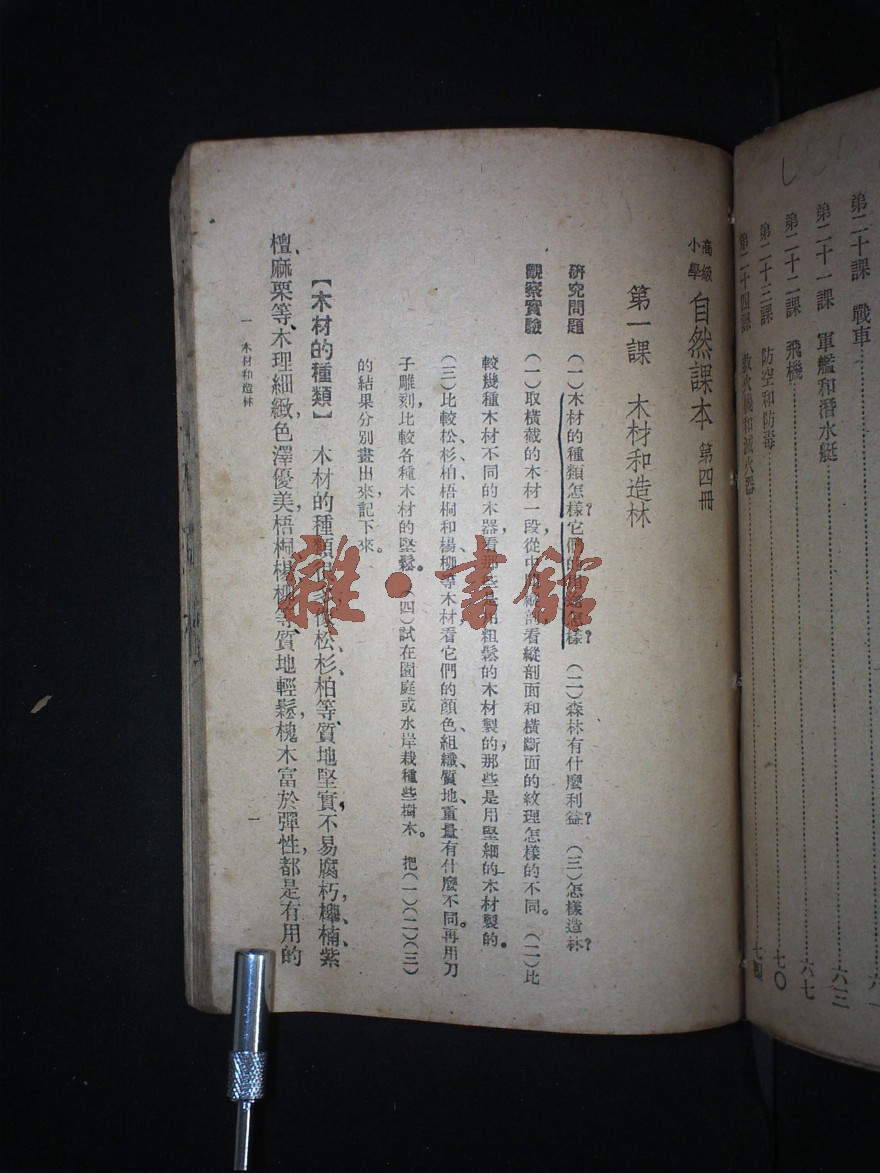 第二十課 戰車
第二十一課 軍艦和潛水艇 六三
第二十二課 飛機 六七
第二十三課 防空和防毒 七〇
第二十四課 救火機和滅火器 七四
高級小學 自然課本 第四冊
第一課 木材和造林
研究問題 (一)木材的種類怎樣?它們的用途怎樣? (二)森林有什麼利益? (三)怎樣造林?
觀察實驗 (一)取橫截的木材一段,從中縱剖,看縱剖面和橫斷面的紋理怎樣的不同。 (二)比
較幾種木材不同的木器,看那些是用粗鬆的木材製的,那些是用堅細的木材製的。
(三)比較松、杉、柏、梧桐和楊柳等木材,看它們的顏色、組織、質地、重量有什麼不同,再用刀
子雕刻,比較各種木材的堅鬆。 (四)試在園庭或水岸栽種些樹木。 把(一)(二)(三)
的結果,分別畫出來,記下來。
【木材的種類】 木材的種類很多,松、杉、柏等,質地堅實,不易腐朽,櫸、楠、紫
檀、麻栗等,木理細緻,色澤優美,梧桐、楊柳等,質地輕鬆,槐木富於彈性,都是有用的
一 木材和造林
一
雜·書館